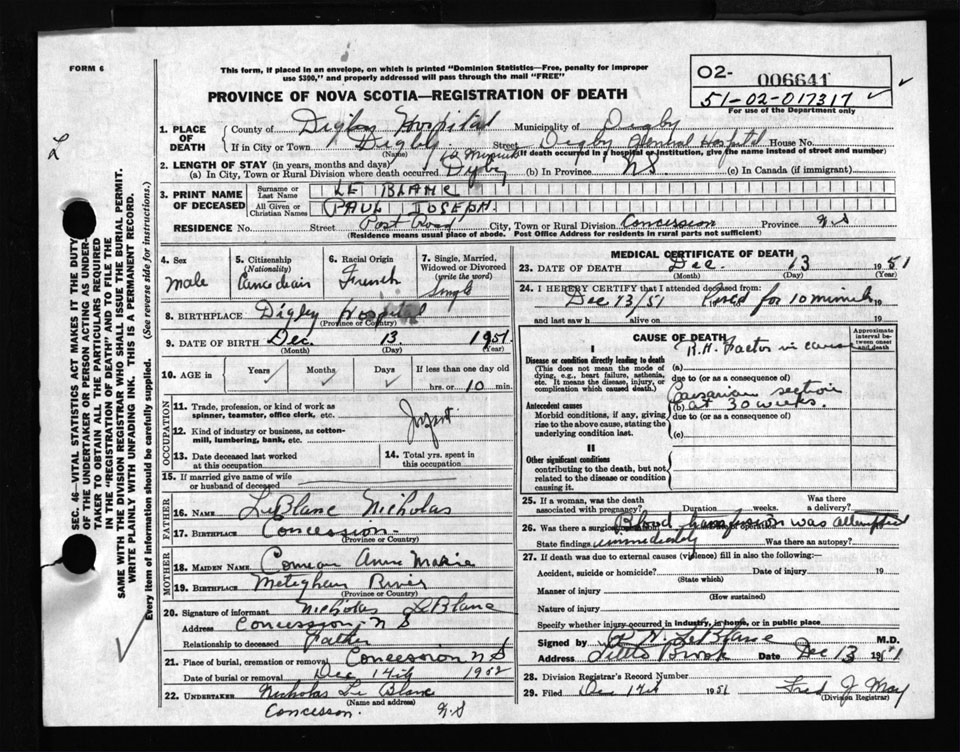 FORM 6
This form, if placed in an envelope, on which is printed "Dominion Statistics—Free, penalty for improper
use $300," and properly addressed will pass through the mail "FREE"
02- 006641
51-02-017317
For use of the Department only
PROVINCE OF NOVA SCOTIA—REGISTRATION OF DEATH
L
SEC. 46—VITAL STATISTICS ACT MAKES IT THE DUTY
OF THE UNDERTAKER OR PERSON ACTING AS UNDER-
TAKER TO OBTAIN ALL THE PARTICULARS REQUIRED
IN THE "REGISTRATION OF DEATH" AND TO FILE THE
SAME WITH THE DIVISION REGISTRAR WHO SHALL ISSUE THE BURIAL PERMIT.
WRITE PLAINLY WITH UNFADING INK. THIS IS A PERMANENT RECORD.
Every item of information should be carefully supplied. (See reverse side for instructions.)
1. PLACE OF DEATH
County of Digby Hospital Municipality of Digby
If in City or Town Digby Street Digby General Hospital House No.
(Name) (If death occurred in a hospital or institution, give the name instead of street and number)
2. LENGTH OF STAY (in years, months and days)
(a) In City, Town or Rural Division where death occurred Digby (b) In Province NS. (c) In Canada (if immigrant)
3. PRINT NAME OF DECEASED
Surname or Last Name LE BLANC
All Given or Christian Names PAUL JOSEPH.
RESIDENCE No. Street Post Road City, Town or Rural Division Concession Province N.S
(Residence means usual place of abode. Post Office Address for residents in rural parts not sufficient)
4. Sex
male
5. Citizenship
(Nationality)
6. Racial Origin
French
7. Single, Married,
Widowed or Divorced
(write the word)
Single
8. BIRTHPLACE Digby Hospital
(Province or Country)
9. DATE OF BIRTH Dec. 13 1951
(Month) (Day) (Year)
10. AGE in Years Months Days If less than one day old
hrs. or 10 min.
OCCUPATION
11. Trade, profession, or kind of work as
spinner, teamster, office clerk, etc.
12. Kind of industry or business, as cotton-
mill, lumbering, bank, etc.
13. Date deceased last worked
at this occupation
14. Total yrs. spent in
this occupation
15. If married give name of wife
or husband of deceased
FATHER
16. Name LeBlanc Nicholas
17. Birthplace Concession
(Province or Country)
MOTHER
18. MAIDEN NAME Comeau Anne Marie
19. BIRTHPLACE Meteghan River
(Province or Country)
20. Signature of informant Nicholas LeBlanc
Address Concession, N S
Relationship to deceased Father
21. Place of burial, cremation or removal Concession N S
Date of burial or removal Dec 14th 1952
22. UNDERTAKER Nicholas Le Blanc
(Name and address)
Concession. N.S
MEDICAL CERTIFICATE OF DEATH
23. DATE OF DEATH Dec. 13 1951
(Month) (Day) (Year)
24. I HEREBY CERTIFY that I attended deceased from:
Dec 13/51 for 10 minutes 19
and last saw h alive on 19
CAUSE OF DEATH
Approximate interval be-
tween onset and death
I
Disease or condition directly leading to death
(This does not mean the mode of
dying, e.g., heart failure, asthenia,
etc. It means the disease, injury, or
complication which caused death.)
R.H. Factor in cause
(a)
due to (or as a consequence of)
Antecedent causes
Morbid conditions, if any, giving
rise to the above cause, stating the
underlying condition last.
Caesarian section
(b) at 30 weeks.
due to (or as a consequence of)
(c)
II
Other significant conditions
contributing to the death, but not
related to the disease or condition
causing it.
25. If a woman, was the death
associated with pregnancy? Duration weeks. Was there
a delivery?
26. Was there a surgical operation Blood transfusion was attempted
State findings immediately Was there an autopsy?
27. If death was due to external causes (violence) fill in also the following:—
Accident, suicide or homicide? Date of injury 19
(State which)
Manner of injury
(How sustained)
Nature of injury
Specify whether injury occurred in industry, in home, or in public place
Signed by LeBlanc M.D.
Address Brook Date Dec 13 1951
28. Division Registrar's Record Number
29. Filed Dec 14th 1951 Fred J May
(Division Registrar)